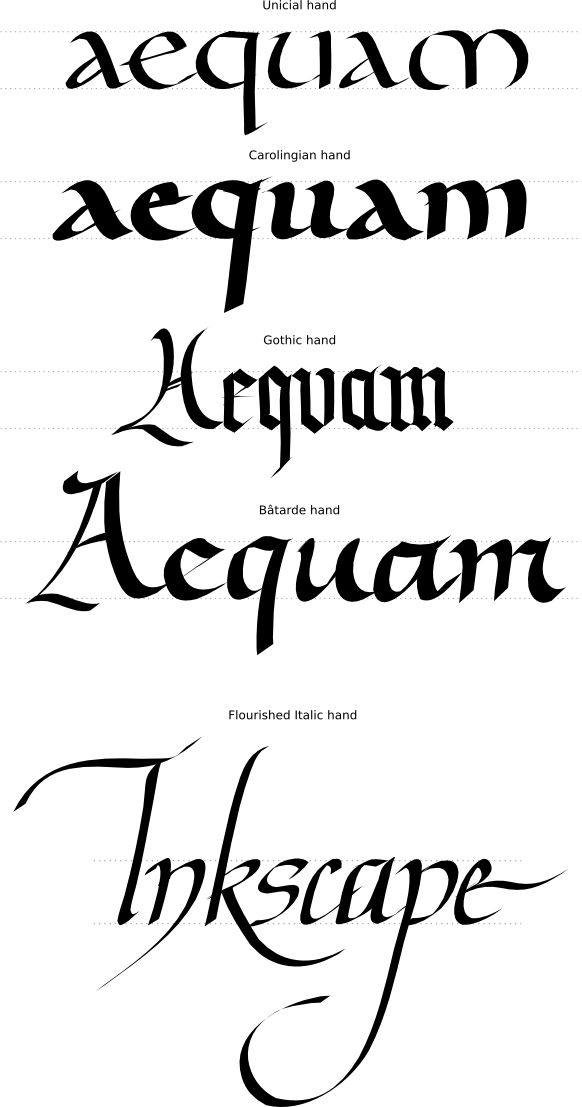 Unicial hand
aequam
Carolingian hand
aequam
Gothic hand
Aequam
Bâtarde hand
Aequam
Flourished Italic hand
Inkscape